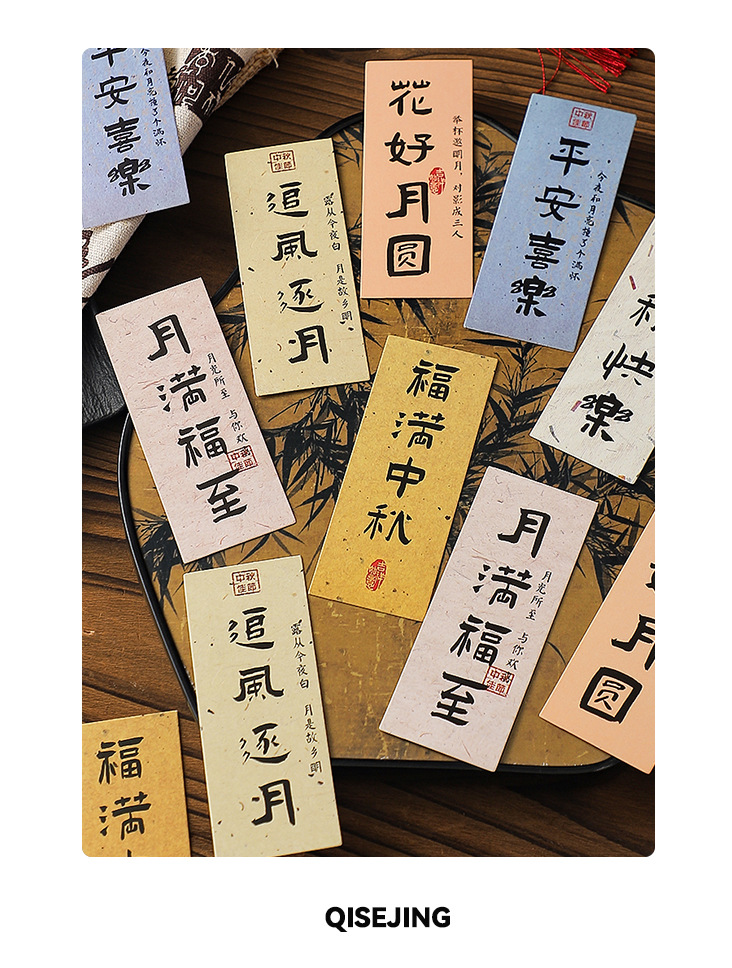 平安喜樂
今夜和月亮撞了个满怀
中秋佳節
追風逐月
露从今夜白 月是故乡明
花好月圆
举杯邀明月，对影成三人
中秋佳節
平安喜樂
今夜和月亮撞了个满怀
快樂
月満福至
月光所至 与你欢
中秋佳節
福満中秋
月満福至
月光所至 与你欢
中秋佳節
月圆
中秋佳節
追風逐月
露从今夜白 月是故乡明
福満
QISEJING